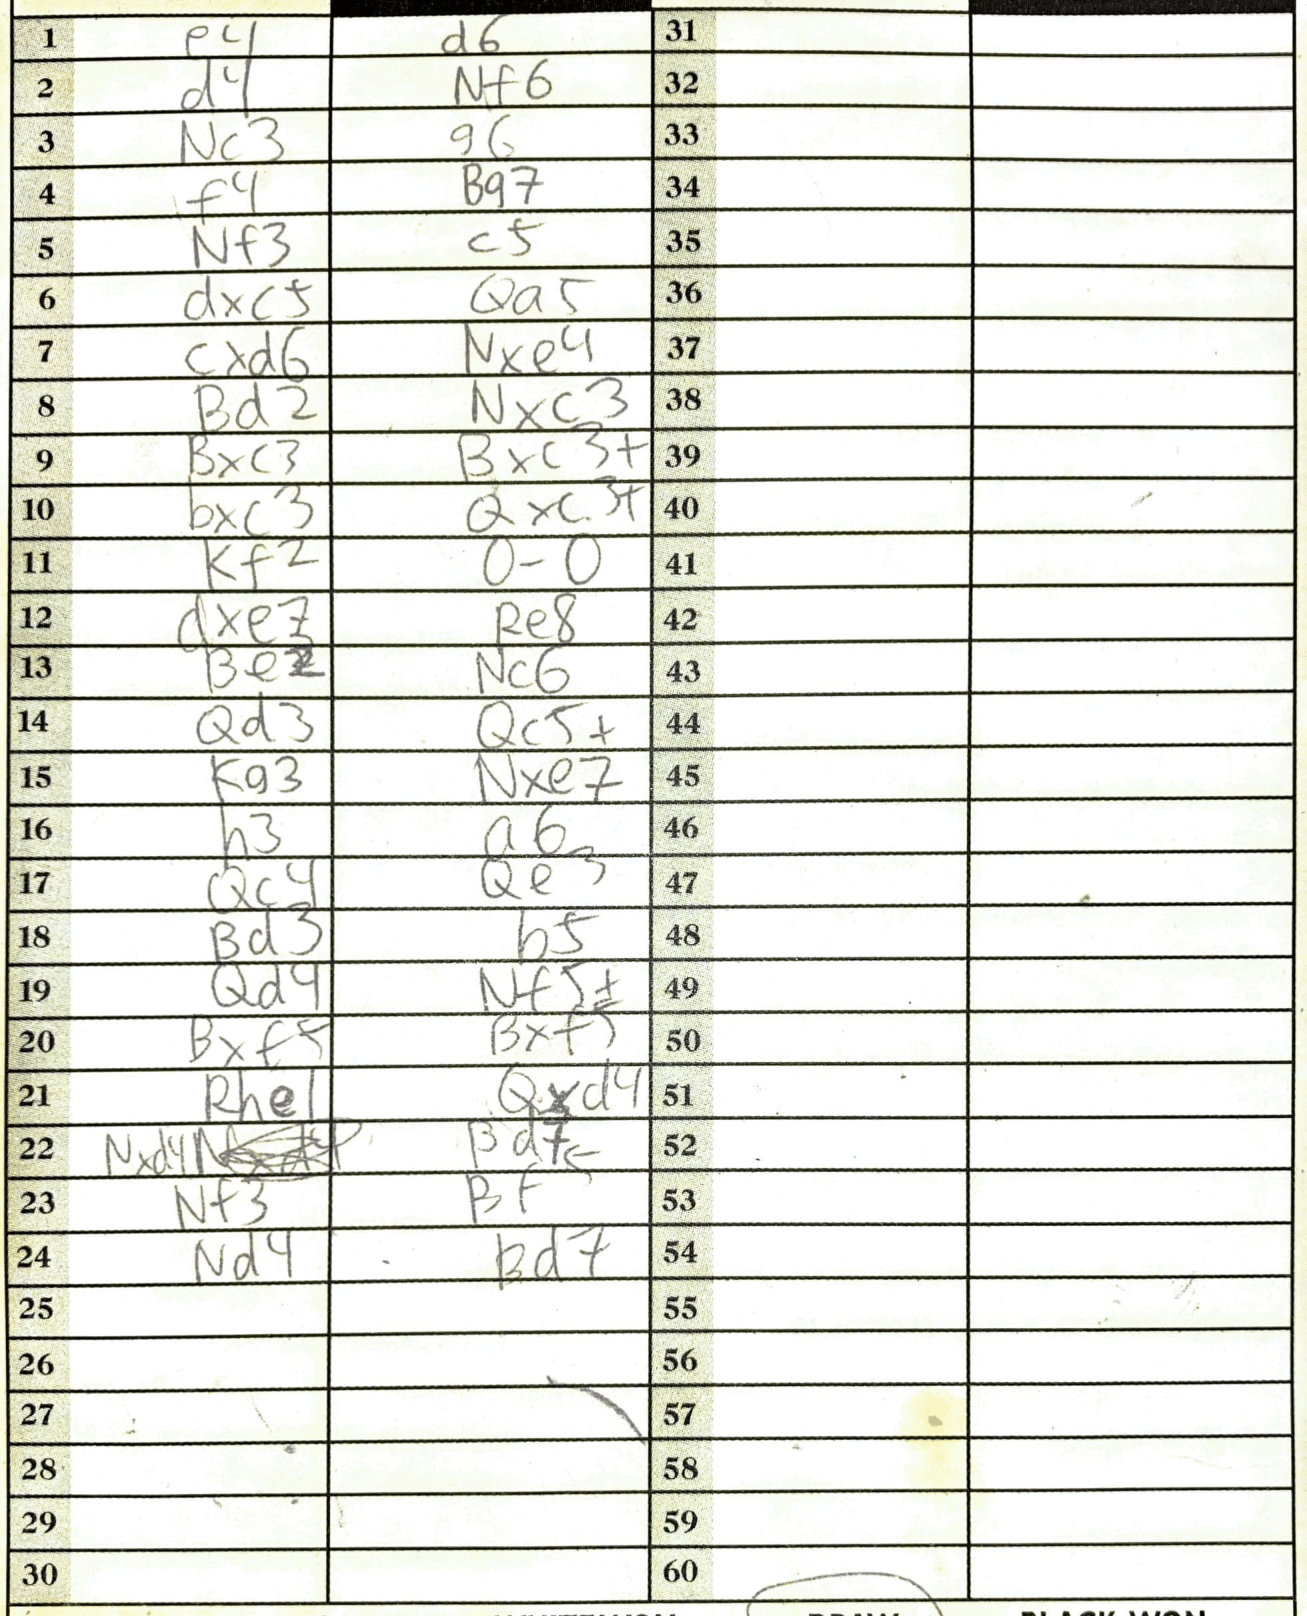 1 e4 d6 31
2 d4 Nf6 32
3 Nc3 g6 33
4 f4 Bg7 34
5 Nf3 c5 35
6 dxc5 Qa5 36
7 cxd6 Nxe4 37
8 Bd2 Nxc3 38
9 Bxc3 Bxc3+ 39
10 bxc3 Qxc3+ 40
11 Kf2 0-0 41
12 dxe7 Re8 42
13 Be2 Nc6 43
14 Qd3 Qc5+ 44
15 Kg3 Nxe7 45
16 h3 a6 46
17 Qc4 Qe3 47
18 Bd3 b5 48
19 Qd4 Nf5+ 49
20 Bxf5 Bxf5 50
21 Rhe1 Qxd4 51
22 Nxd4 Bd7 52
23 Nf3 Bf5 53
24 Nd4 Bd7 54
25 55
26 56
27 57
28 58
29 59
30 60
DRAW BLACK WON